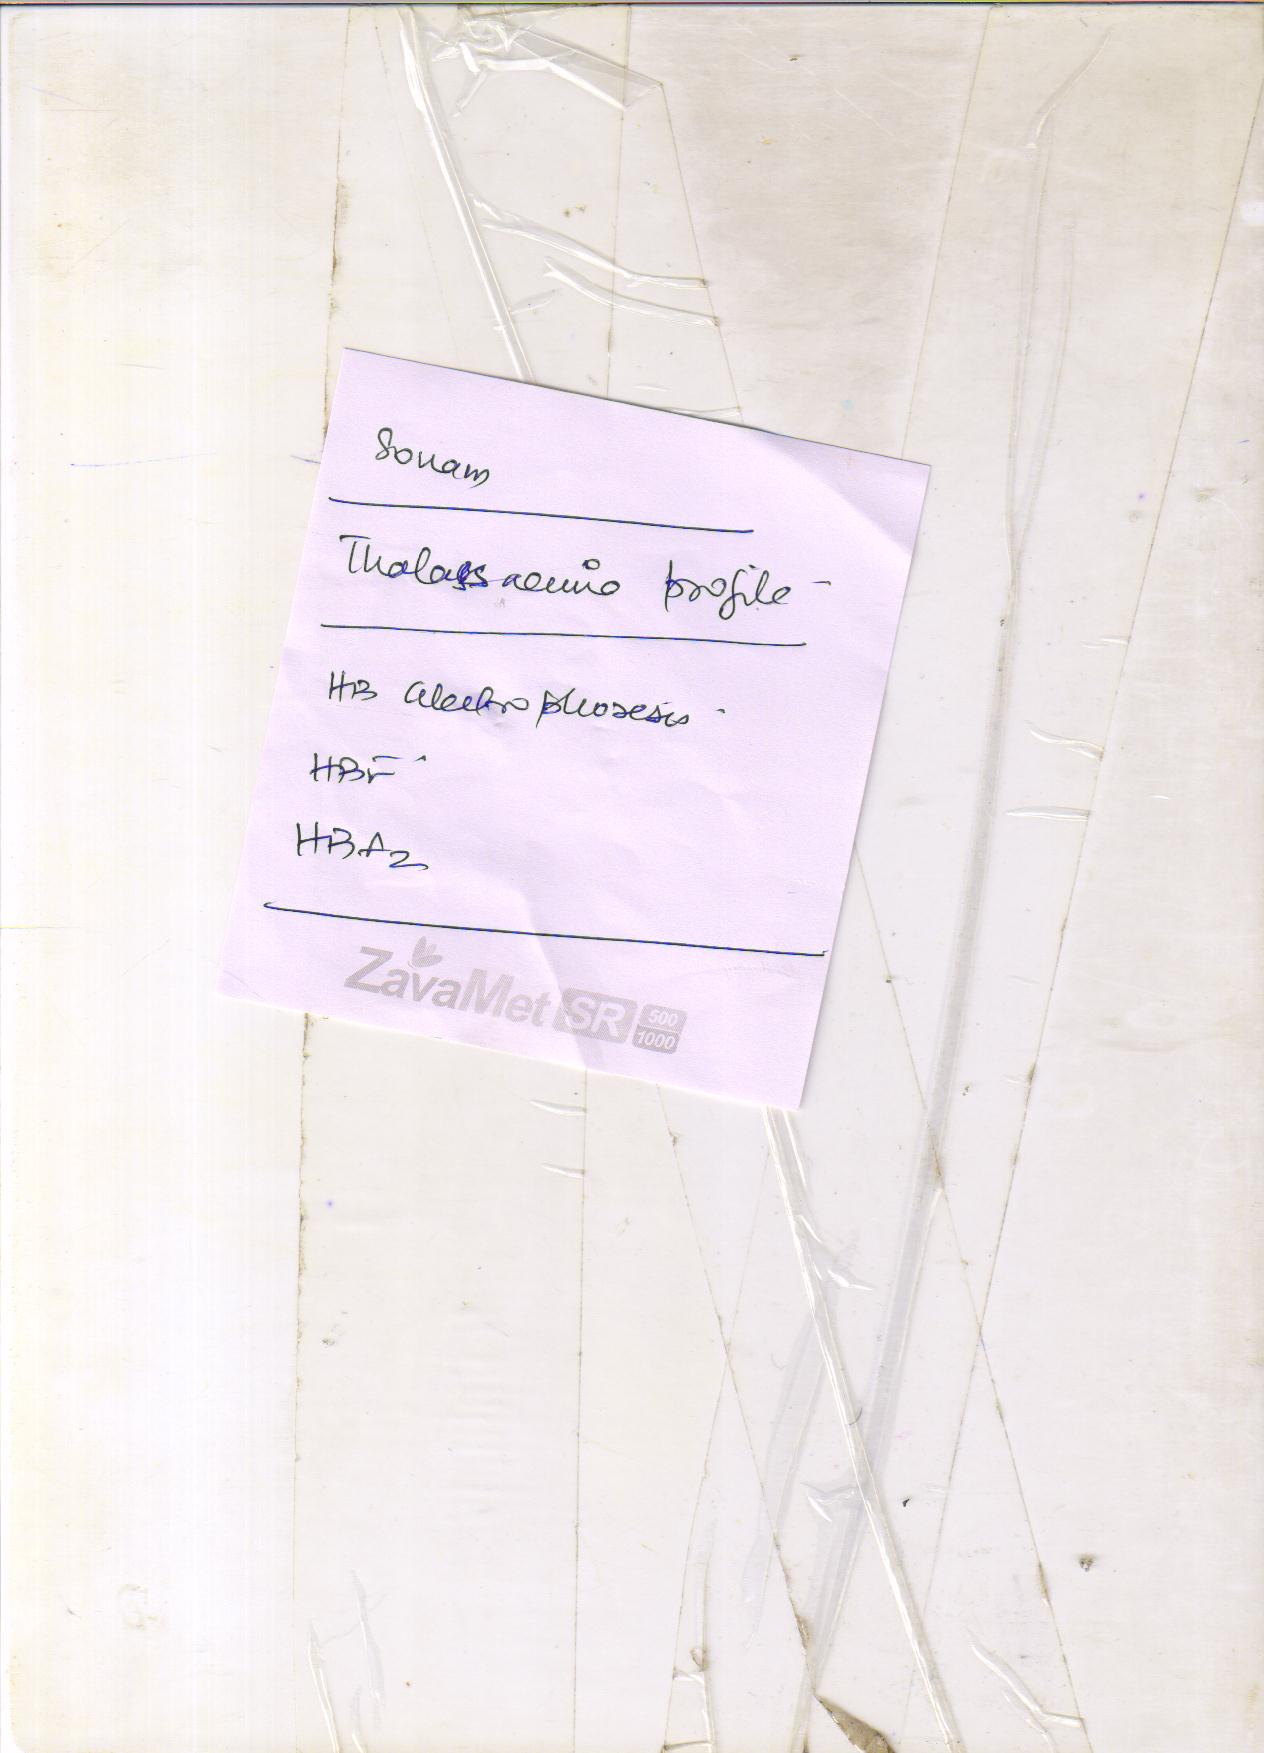 Sonam
Thalassaemia profile -
HB electrophoresis -
HBF -
HBA2
ZavaMet SR 500 1000